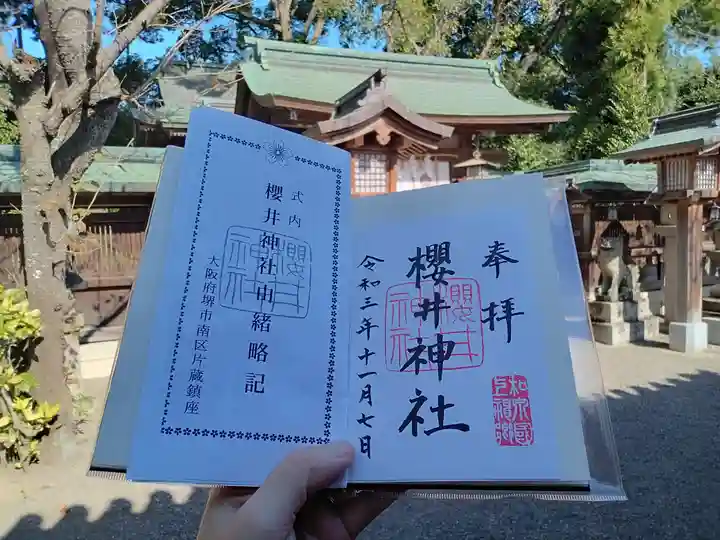 奉拝
櫻井神社
櫻井神社
令和三年十一月七日
式内
櫻井神社由緒略記
櫻井神社
大阪府堺市南区片蔵鎮座